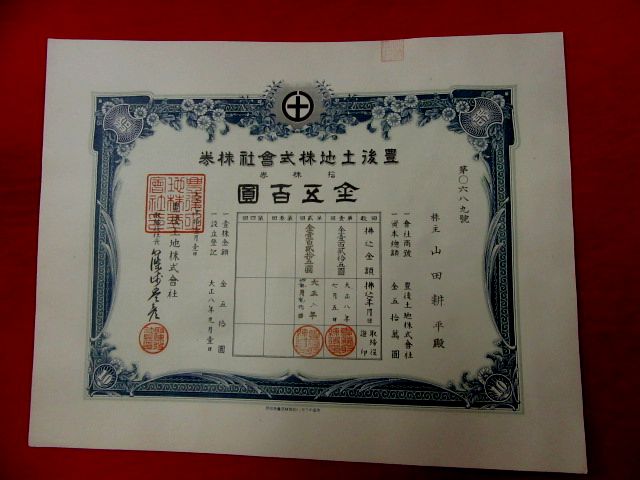 券株社會式株地土後豊
券株拾
圓百五金
第〇六八九號
株主 山田耕平殿
一會社商號 豊後土地株式會社
一資本總額 金五拾萬圓
回數
拂込金額
拂込年月日
取締役證印
第壹回
金壹百貳拾五圓
大正八年七月五日
第貳回
金壹百貳拾五圓
第參回
第四回
一壹株金額 金五拾圓
一設立登記 大正八年九月壹日
土地株式會社